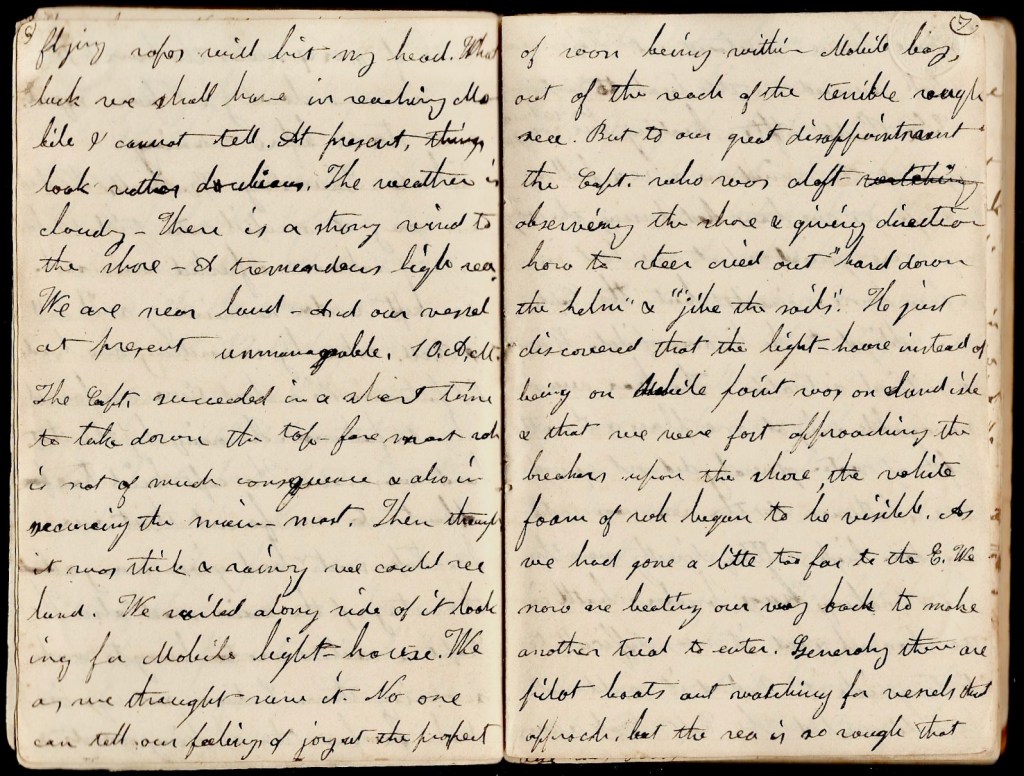 flying ropes will hit my head. What
luck we shall have in reaching Mo
bile I cannot tell. At present, things
look rather dubious. The weather is
cloudy – There is a strong wind to
the shore – A tremendous high sea.
We are near land – And our vessel
at present unmanageable. 10. A.M.
The Capt. succeeded in a short time
to take down the top-fore mast wh
is not of much consequence & also in
securing the main-mast. Then though
it was thick & rainy we could see
land. We sailed along side of it look
ing for Mobile light-house. We
as we thought saw it. No one
can tell our feelings of joy at the prospect
7
of soon being within Mobile bay,
out of the reach of the terrible rough
sea. But to our great disappointment
the Capt. who was aloft watching
observing the shore & giving direction
how to steer cried out "hard down
the helm" & "jibe the sails". He just
discovered that the light-house instead of
being on Mobile point was on Sand isle
& that we were fast approaching the
breakers upon the shore, the white
foam of wh began to be visible. As
we had gone a little too far to the E. We
now are beating our way back to make
another trial to enter. Generaly there are
pilot boats out watching for vessels that
approach, but the sea is so rough that